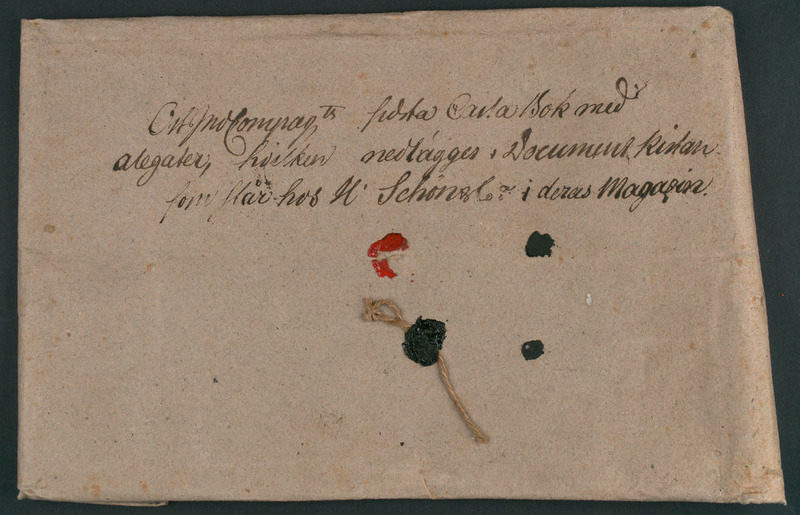 Ost Ind Compag:ts sista Cassa Bok med
alegater, hvilken nedlägges i Document kistan
som står hos H:r Schön & Co: i deras Magazin.